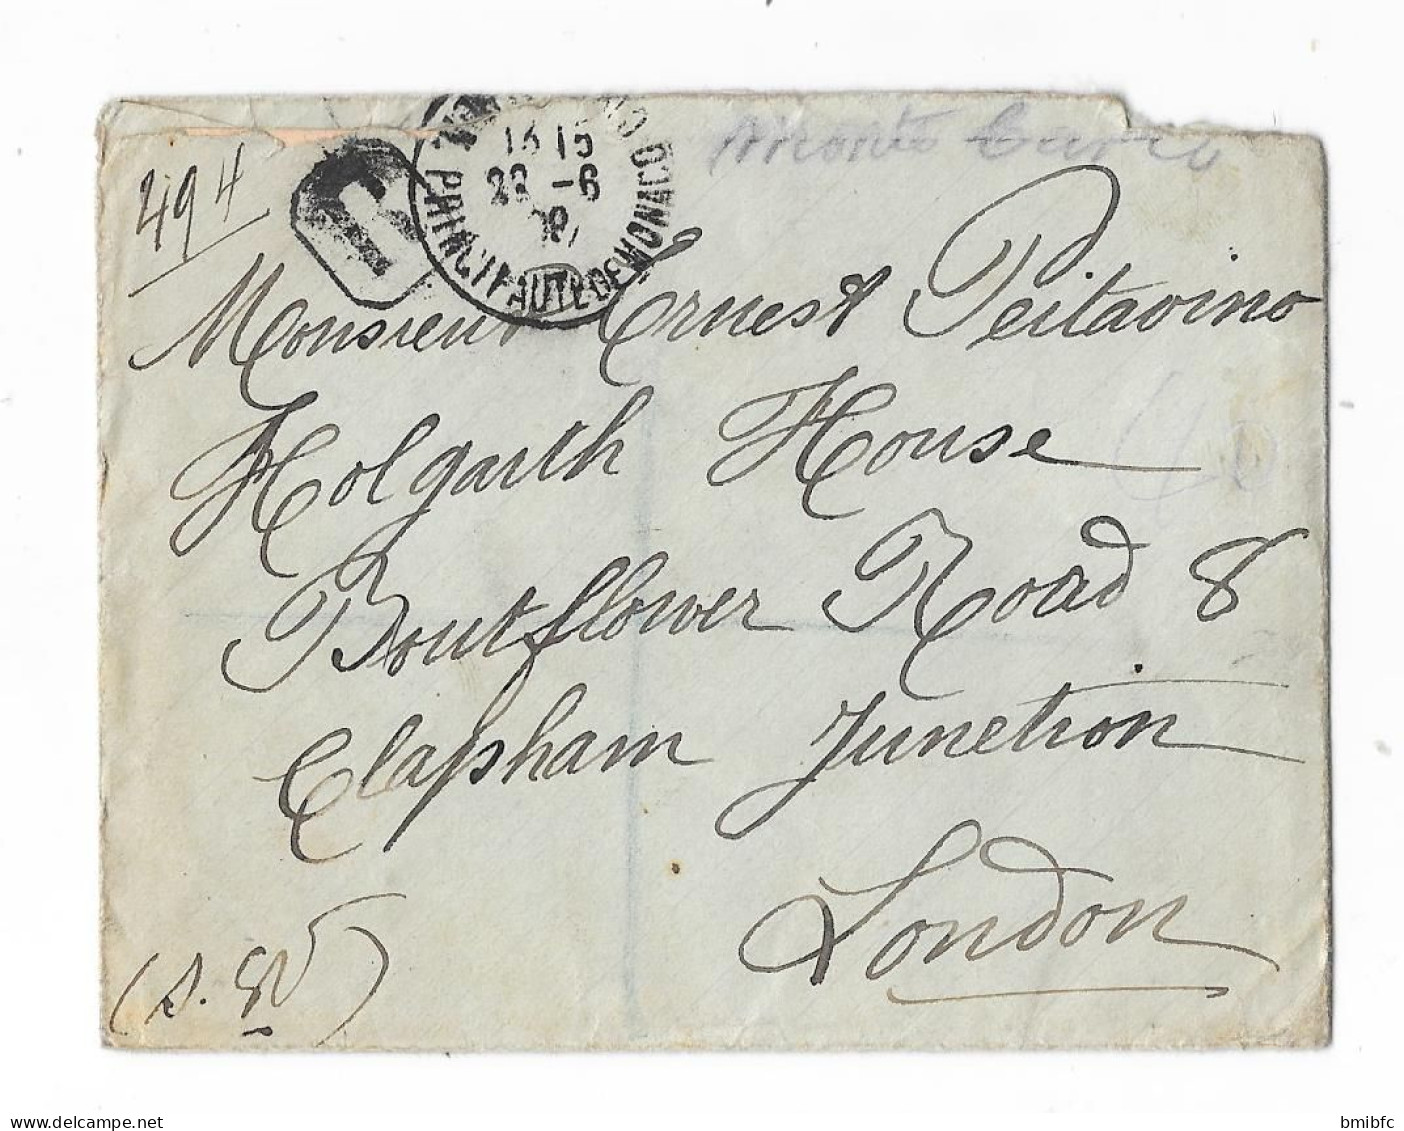 Monte Carlo
494
R
13 15
22 -6
09
PRINCIPAUTE DE MONACO
Monsieur Ernest Peitavino
Holgarth House
Boutflower Road 8
Clapham Junction
London
(S. W)
delcampe.net
bmibfc